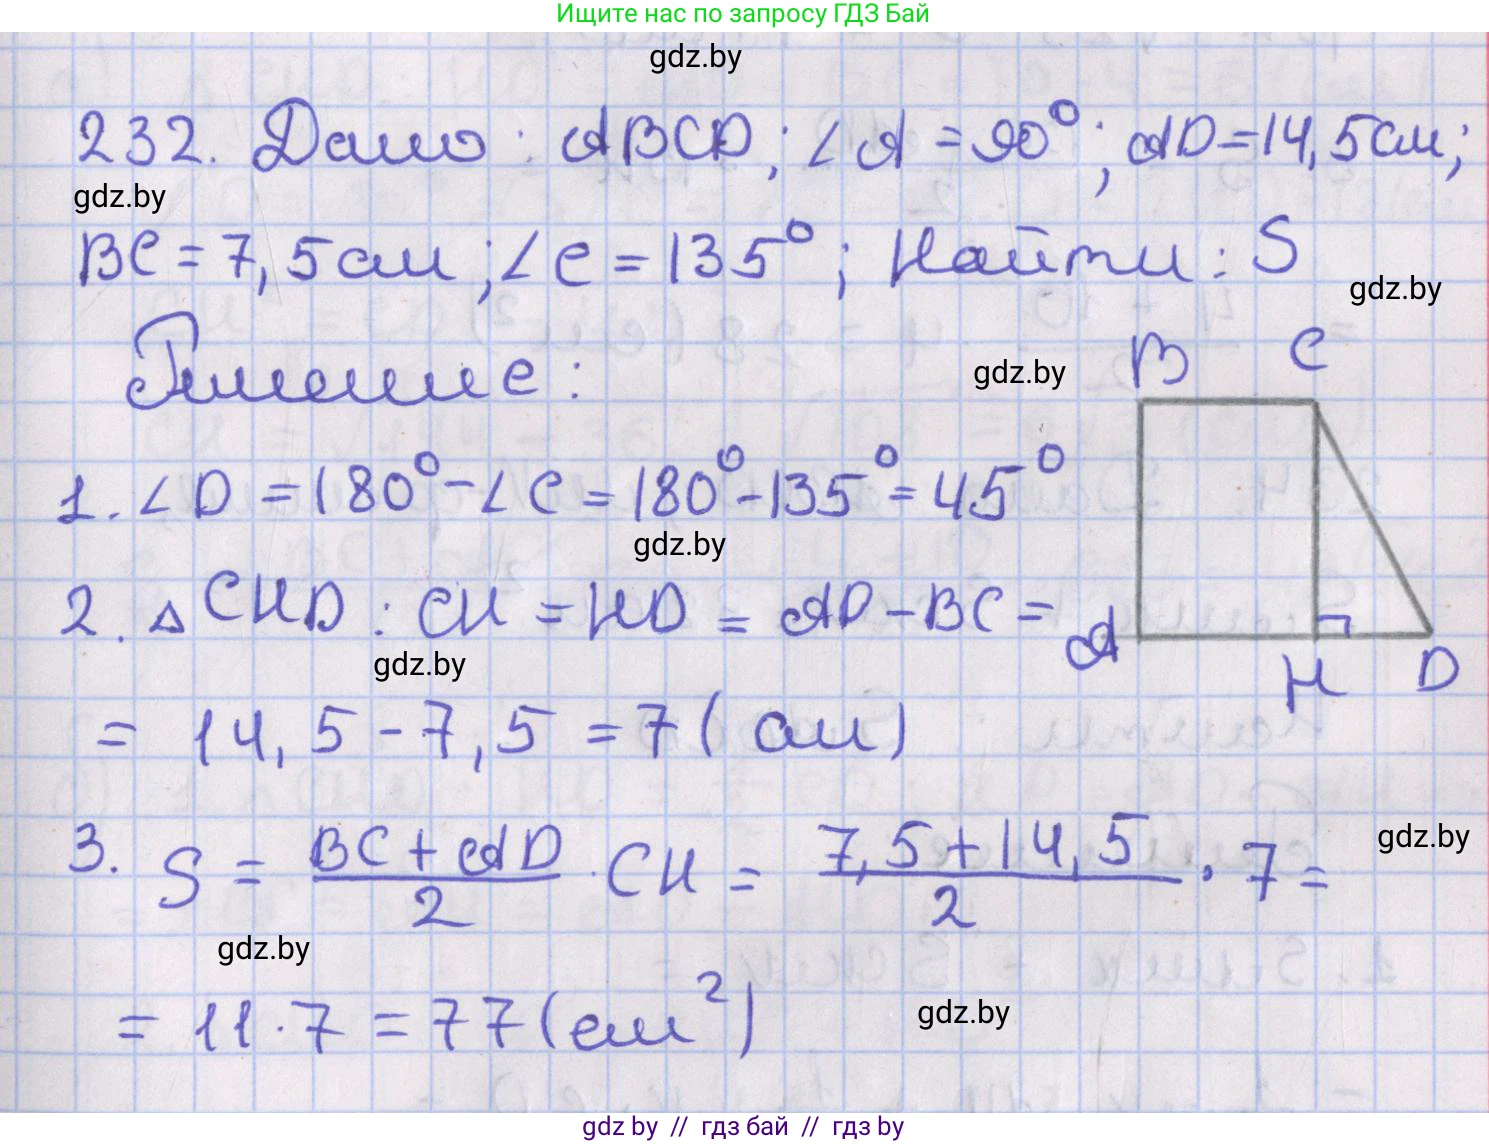 Ищите нас по запросу ГДЗ Бай
gdz.by
232. Дано: ABCD; ∠A = 90°; AD = 14,5 см;
gdz.by
BC = 7,5 см; ∠C = 135°; Найти: S
gdz.by
Решение:
gdz.by
B C
1. ∠D = 180° - ∠C = 180° - 135° = 45°
gdz.by
2. △CHD: CH = HD = AD - BC =
A H D
gdz.by
= 14,5 - 7,5 = 7 (см)
gdz.by
3. S = (BC + AD)/2 · CH = (7,5 + 14,5)/2 · 7 =
gdz.by
= 11 · 7 = 77 (см²)
gdz.by
gdz by // гдз бай // гдз by